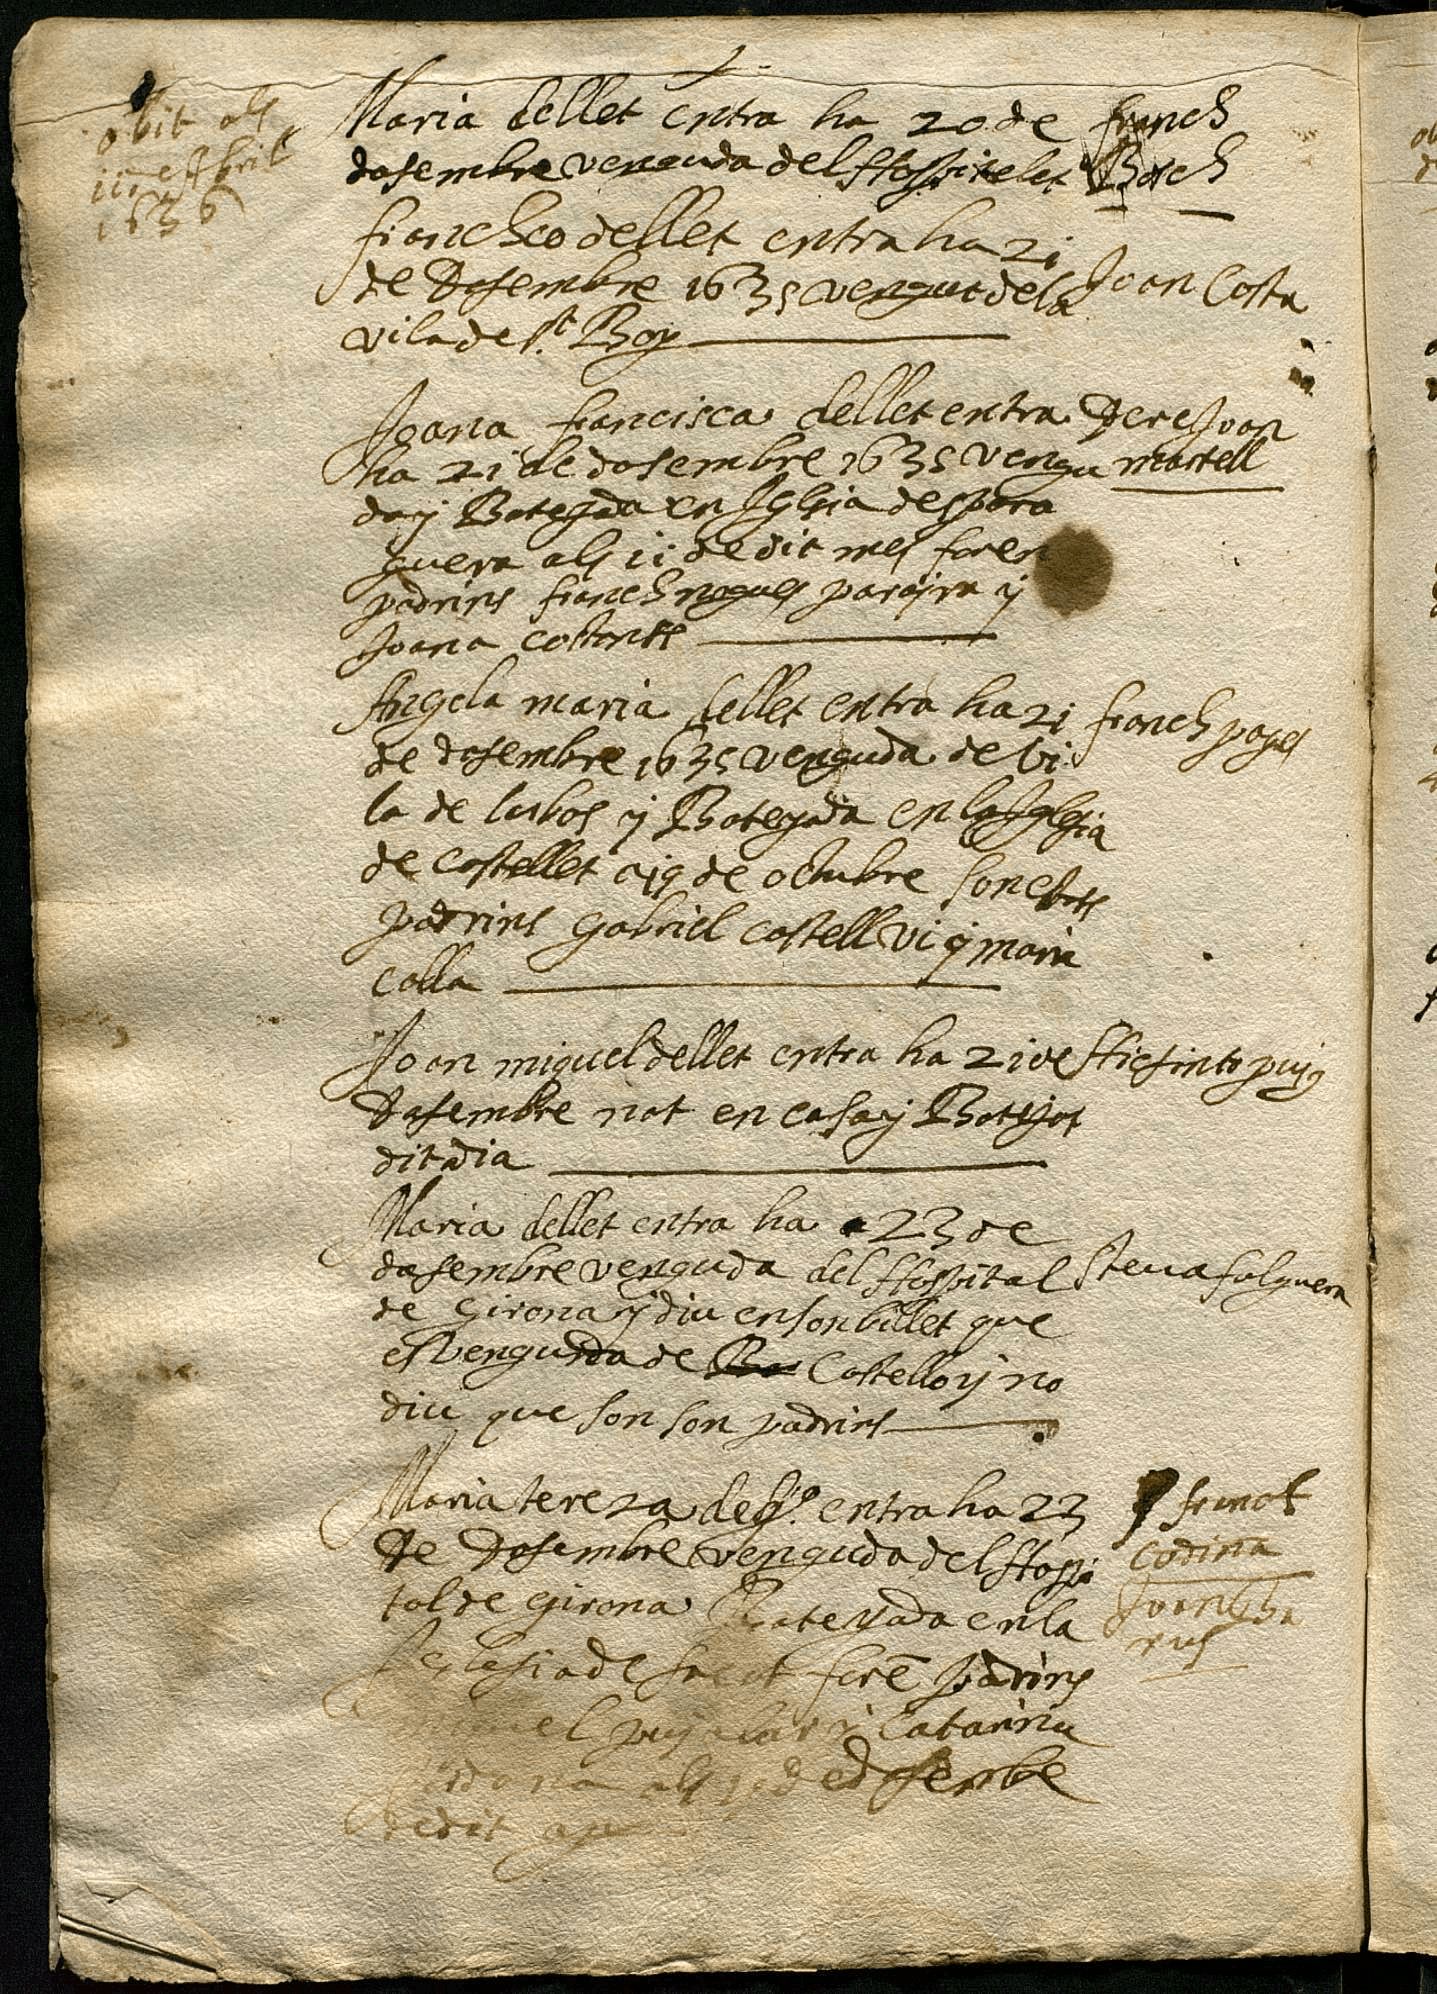 obit als
ii de Abril
1636
Maria dellet entra ha 20 de
desembre venguda del Hospitalet
franch
Bosch
franchco dellet entra ha 21
de Desembre 1635 vengut de la
vila de St. Boy
Joan Costa
Joana francisca dellet entra
ha 21 de desembre 1635 vengu
da y Batejada en Iglsia despara
guera als ii de dit mes foren
padrins franch nogues parayra y
Joana
Pere Joan
martell
Angela maria dellet entra ha 21
de desembre 1635 venguda de Vi
la de lubos y Bateyada en la Iglsia
de Castellet a 19 de octubre son
padrins Gabriel Castellvi y maria
Calla
franch pages
Joan miquel dellet entra ha 21 de
Desembre nat en casa y Batejat
dit dia
Hiesinto puig
Maria dellet entra ha 23 de
desembre venguda del Hospital
de Girona y diu en son billet que
es venguda de Castello y no
diu que son son padrins
Steva falguera
Maria tereza de entra ha 23
De Desembre venguda del Hospi
tal de Girona Bateyada en la
Iglesia de forẽ padrins
Catarina
als de desembe
de dit any
codina
Joan